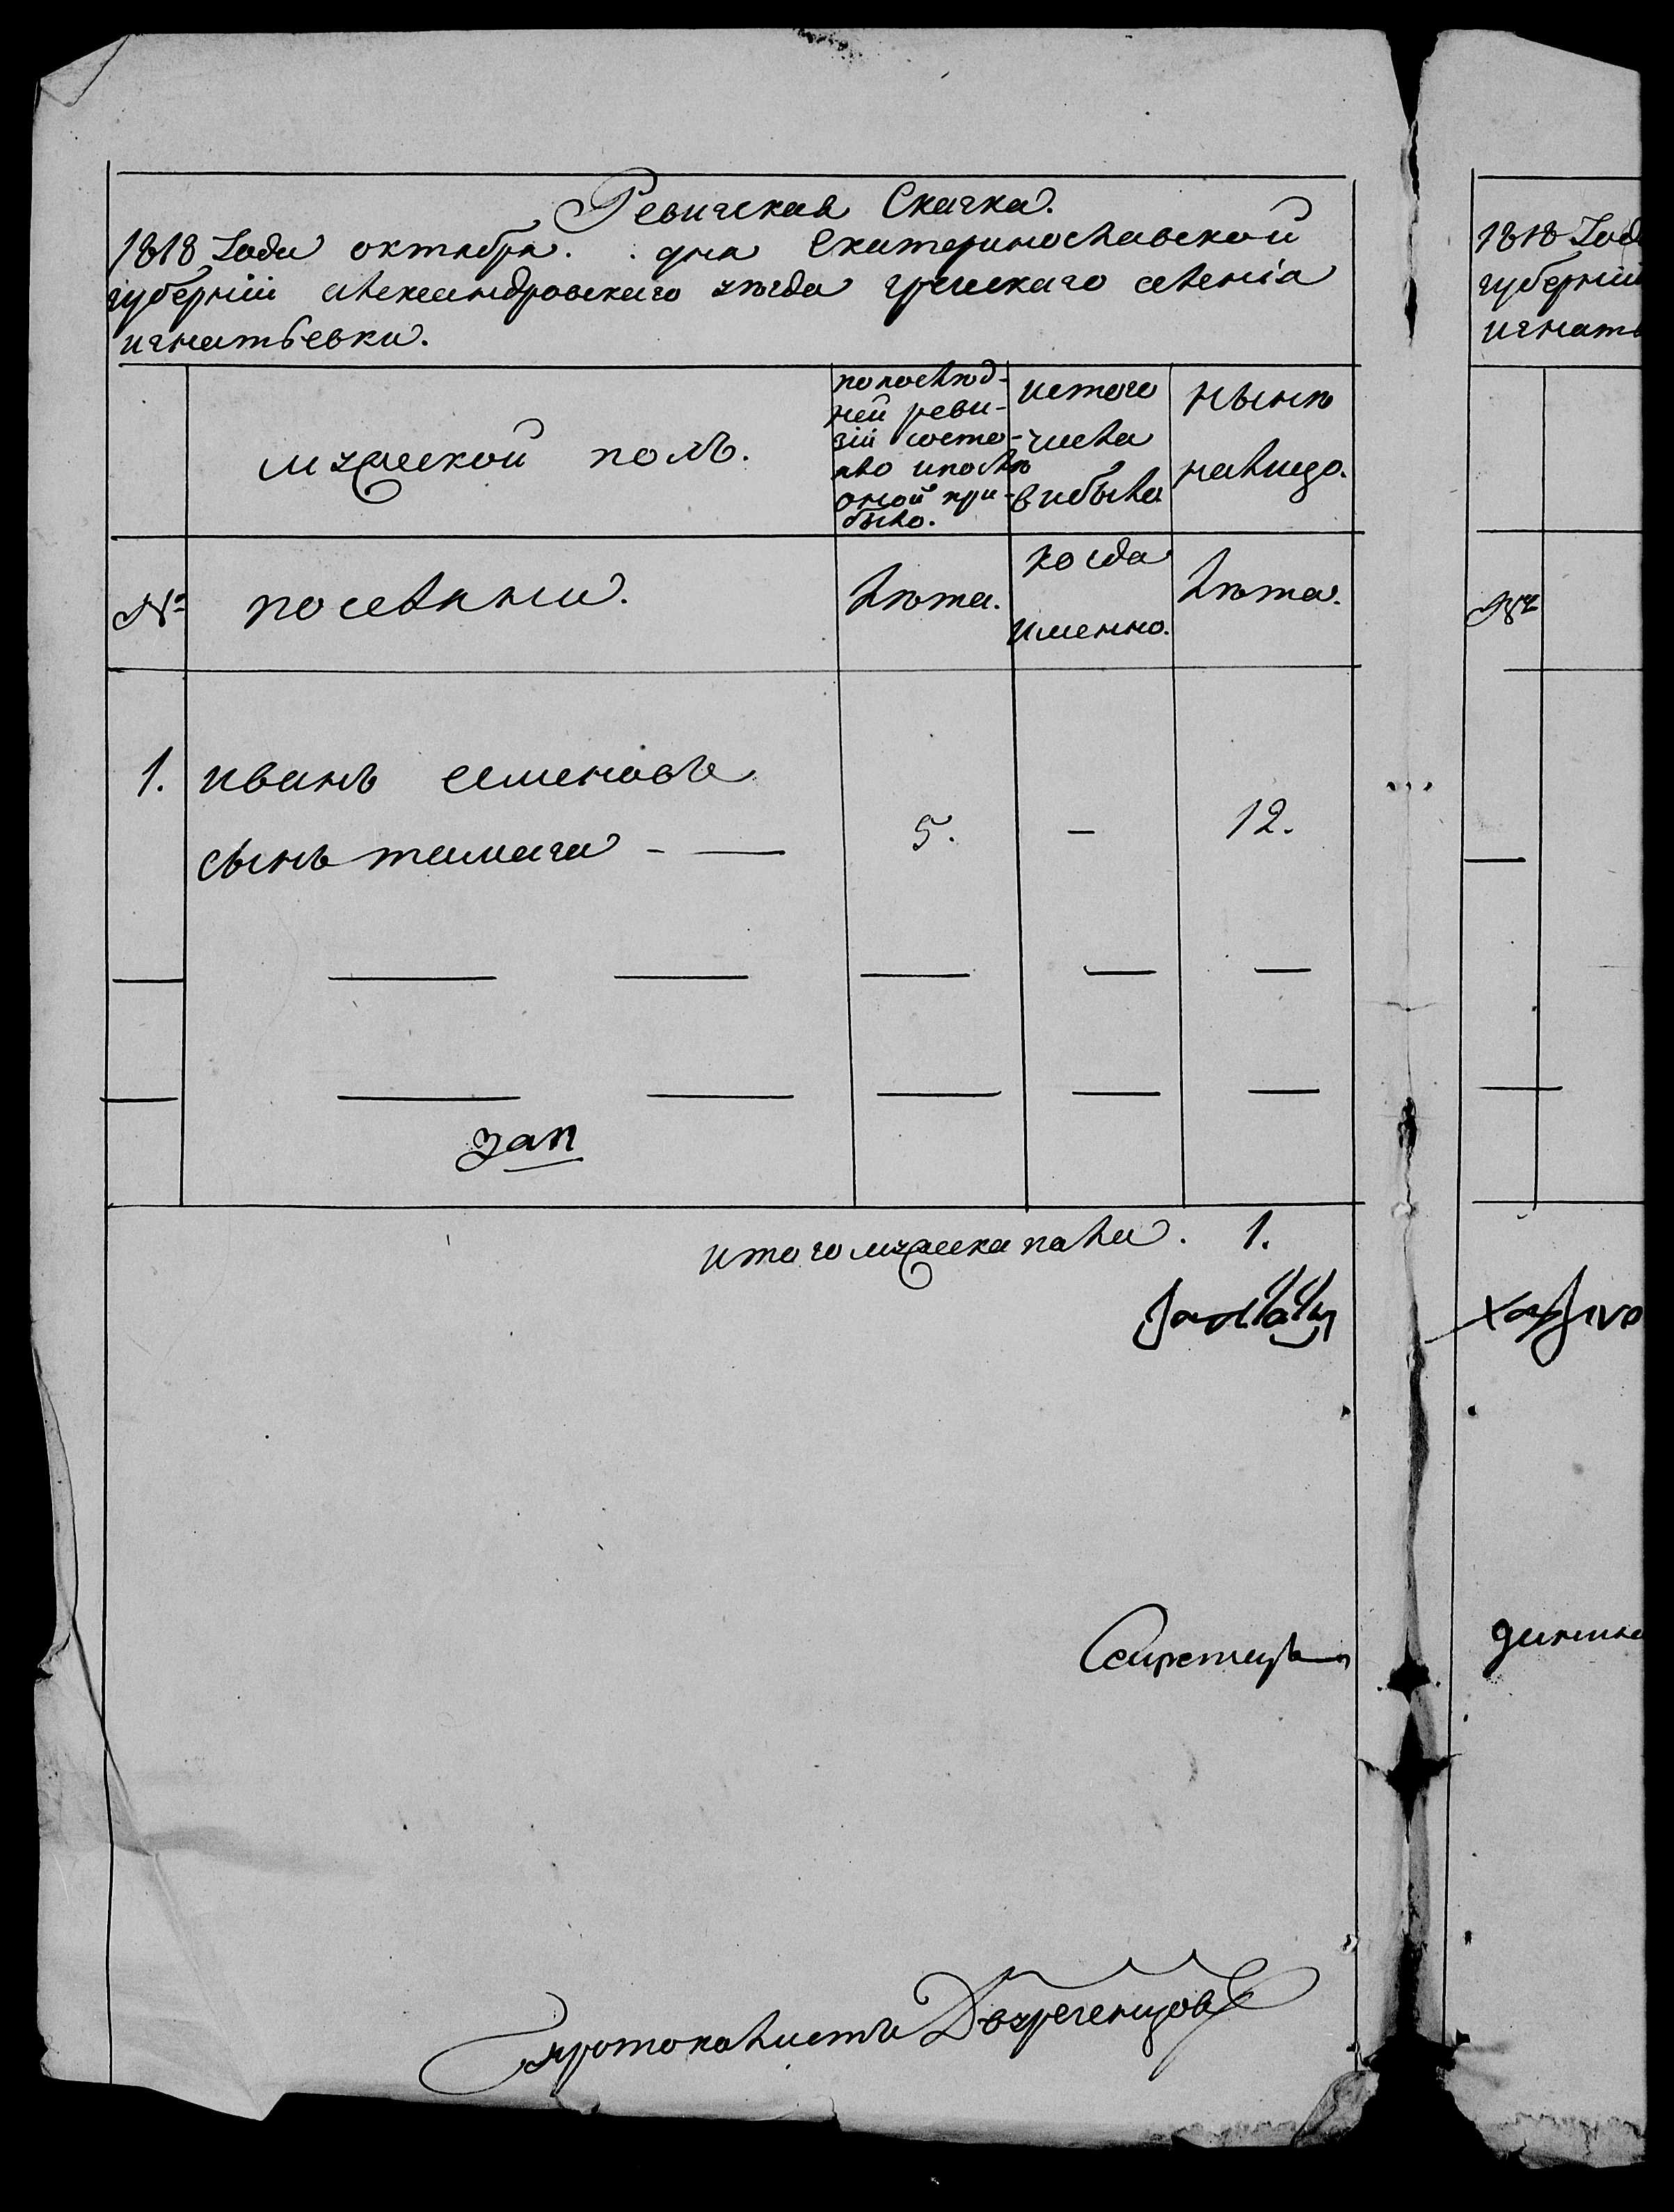 Ревиская Скаска.
1818 Года октября . . дня Екатеринославской
губернiи александровскаго уезда греческаго селенiя
игнатьевки.
мужеской полъ.
по послѣд-
ней реви-
зiи состо-
яло и послѣ
оной при-
было.
ис того
числа
вибыла
нынѣ
налицо.
№
поселяни.
лѣта.
когда
именно.
лѣта.
1. иванъ семеновъ
сынъ тамаги - —
5. — 12.
итого мужеска пола. 1.
Секретарь
протоколистъ
1818 Год
губернiи
игнать
№